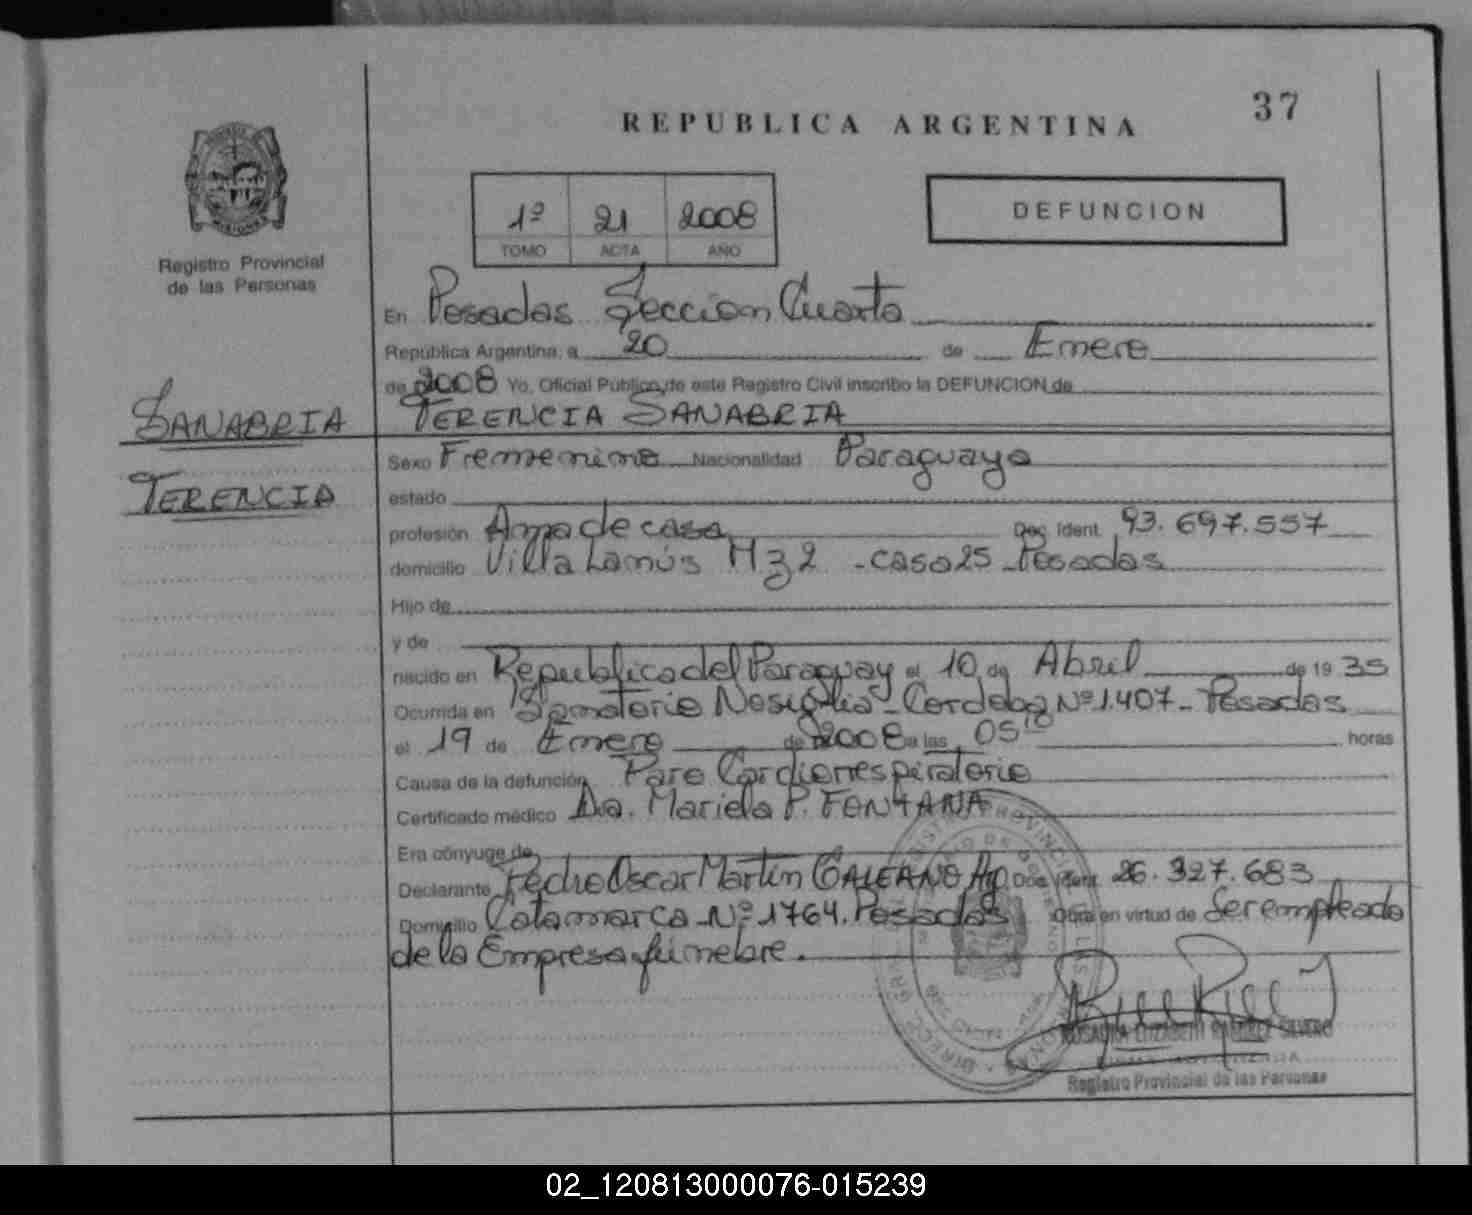 37
REPUBLICA ARGENTINA
DEFUNCION
1º 21 2008
TOMO ACTA AÑO
MISIONES
Registro Provincial
de las Personas
En Posadas Sección Cuarta
República Argentina, a 20 de Enero
de 2008 Yo, Oficial Público de este Registro Civil inscribo la DEFUNCION de
SANABRIA
TERENCIA SANABRIA
TERENCIA
Sexo Fremenino Nacionalidad Paraguaya
estado
profesión Ama de casa Doc. Ident. 93.697.557
domicilio Villa Lanús Mz 2 - casa 25 - Posadas
Hijo de
y de
nacido en Republica del Paraguay el 10 de Abril de 19 35
Ocurrida en Sanatorio Nosiglia - Cordoba Nº 1.407 - Posadas
el 19 de Enero de 2008 a las 05 10 horas
Causa de la defunción Paro Cardiorrespiratorio
Certificado médico Dra. Mariela P. FONTANA
Era cónyuge de
Declarante Pedro Oscar Martin GALEANO Doc. Ident. 26.327.683
Domicilio Catamarca Nº 1764. Posadas Obra en virtud de Ser empleado
de la Empresa fúnebre.
Registro Provincial de las Personas
02_120813000076-015239